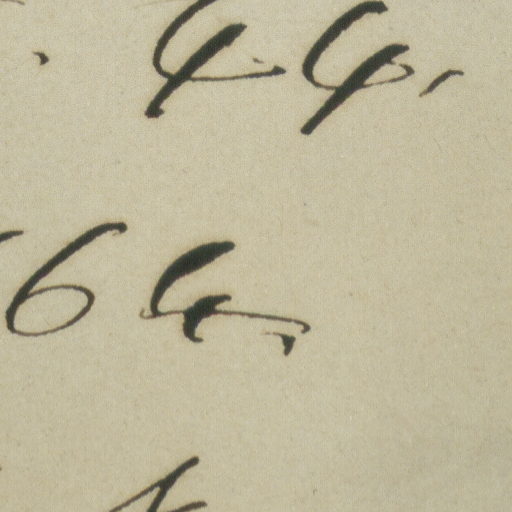 . 44,
64,